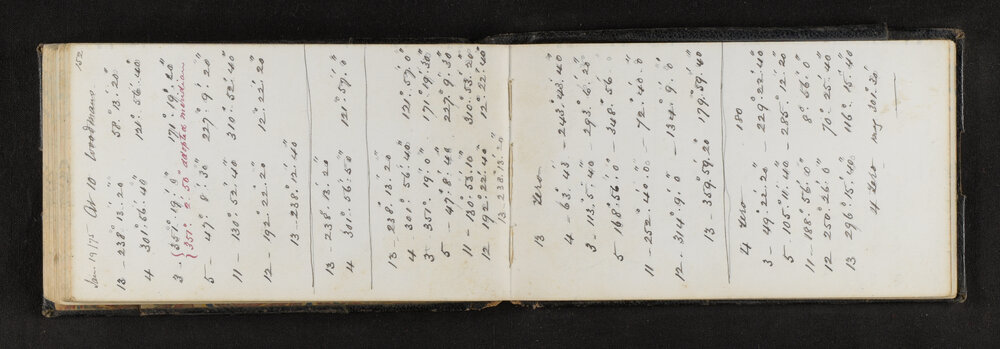 152
Jan. 19/75 At 10 Woodmans
13 - 238° 13' 20" 58° 13' 20"
4 301° 56' 40" 121° 56' 40"
3 - {351° 19' 0" 171° 19' 20"
{351° 2' 50" adopted meridian
5 - 47° 8' 30" 227° 9' 20"
11 - 130° 52' 40" 310° 52' 40"
12 - 192° 22' 20" 12° 22' 20"
13 - 238° 12' 40"
13 - 238° 13' 20"
4 301° 56' 50" 121° 57' 0"
13 - 238° 13' 20"
4 301° 56' 40" 121° 57' 0"
3 - 351° 19' 0" 171° 19' 30"
5 - 47° 8' 40" 227° 9' 30"
11 - 130° 53' 10" 310° 53' 20"
12 192° 22' 40" 12° 22' 40"
13 238° 13' 20"
13 Zero
4 - 63° 43' - 243° 43' 40"
3 - 113° 5' 40" - 293° 6' 20"
5 - 168° 56' 0" - 348° 56'
11 - 252° 40' 0" - 72° 40' 0"
12 - 314° 9' 0" - 134° 9' 0"
13 - 359° 59' 20" 179° 59' 40"
4 Zero 180
3 - 49° 22' 20" - 229° 22' 40"
5 - 105° 11' 40" - 285° 12' 20"
11 - 188° 56' 0" 8° 56' 0"
12 250° 26' 0" 70° 25' 40"
13 296° 15' 40" 116° 15' 40"
4 Zero mag 301° 20'